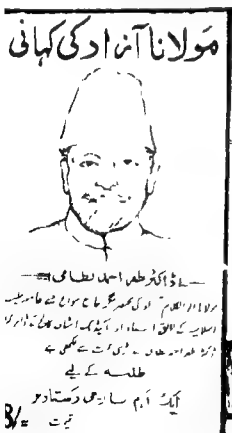 مولانا آزاد کی کہانی
ڈاکٹر ظفر احمد نظامی
مولانا ابوالکلام آزاد کی مختصر مگر جامع سوانح جسے جامعہ ملیہ
اسلامیہ کے لائق استاد اور
ڈاکٹر ظفر احمد نظامی نے بڑی محنت سے لکھی ہے
طلبہ کے لیے
ایک اہم دستاویز
قیمت 8/=